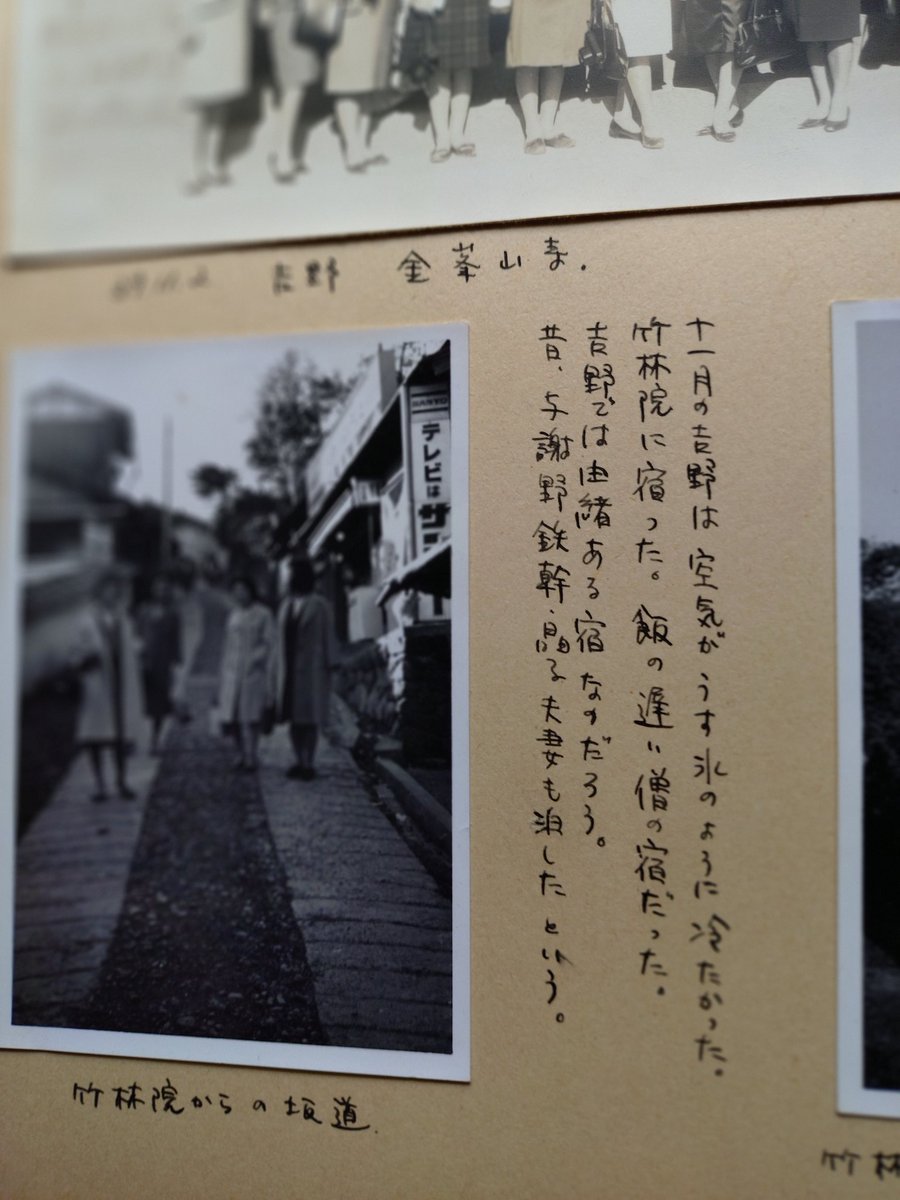 吉野 金峯山寺.
十一月の吉野は空気がうす氷のように冷たかった。
竹林院に宿った。飯の遅い僧の宿だった。
吉野では由緒ある宿なのだろう。
昔、与謝野鉄幹・晶子夫妻も泊したという。
SANYO
テレビは
サ
竹林院からの坂道.
竹林